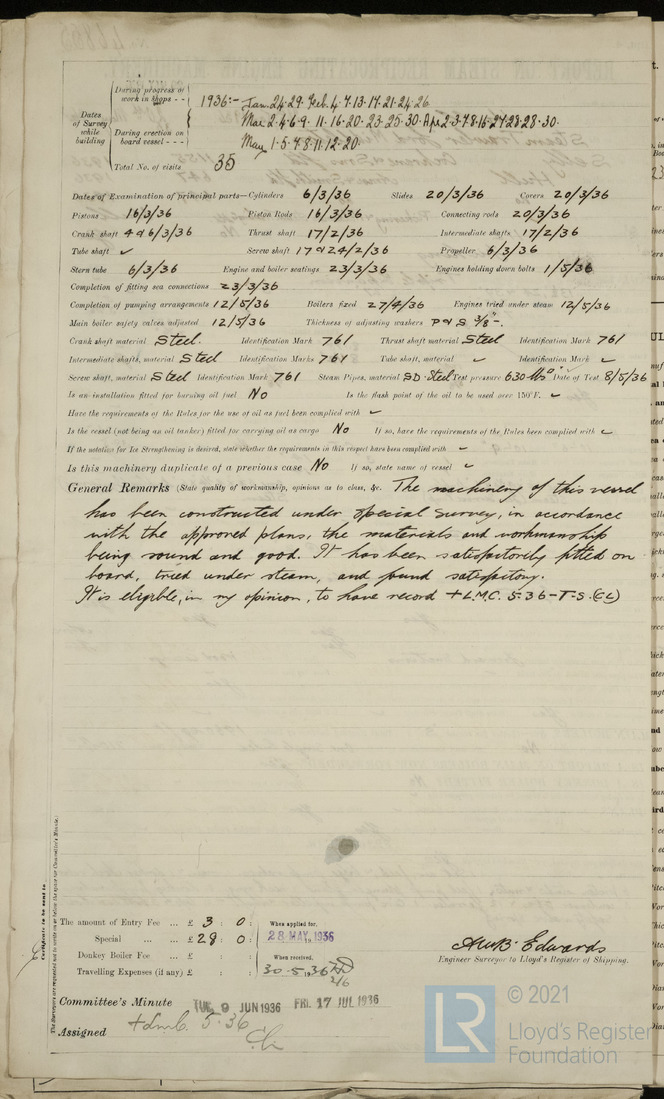 Dates of Survey while building
During progress of work in shops - -
During erection on board vessel - - -
1936:- Jan. 24.29. Feb. 4.7.13.17.21.24.26
Mar 2.4.6.9.11.16.20.23.25.30. Apr 2.3.7.8.16.27.28.28.30.
May 1.5.7.8.11.12.20.
Total No. of visits 35
Dates of Examination of principal parts—Cylinders 6/3/36 Slides 20/3/36 Covers 20/3/36
Pistons 16/3/36 Piston Rods 16/3/36 Connecting rods 20/3/36
Crank shaft 4 & 6/3/36 Thrust shaft 17/2/36 Intermediate shafts 17/2/36
Tube shaft ✓ Screw shaft 17 & 24/2/36 Propeller 6/3/36
Stern tube 6/3/36 Engine and boiler seatings 23/3/36 Engines holding down bolts 1/5/36
Completion of fitting sea connections 23/3/36
Completion of pumping arrangements 12/5/36 Boilers fixed 27/4/36 Engines tried under steam 12/5/36
Main boiler safety valves adjusted 12/5/36 Thickness of adjusting washers P & S 3/8"-.
Crank shaft material Steel. Identification Mark 761 Thrust shaft material Steel Identification Mark 761
Intermediate shafts, material Steel Identification Marks 761 Tube shaft, material ✓ Identification Mark ✓
Screw shaft, material Steel Identification Mark 761 Steam Pipes, material SD Steel Test pressure 630 lbs □" Date of Test 8/5/36
Is an installation fitted for burning oil fuel No Is the flash point of the oil to be used over 150°F. ✓
Have the requirements of the Rules for the use of oil as fuel been complied with ✓
Is the vessel (not being an oil tanker) fitted for carrying oil as cargo No If so, have the requirements of the Rules been complied with ✓
If the notation for Ice Strengthening is desired, state whether the requirements in this respect have been complied with ✓
Is this machinery duplicate of a previous case No If so, state name of vessel ✓
General Remarks (State quality of workmanship, opinions as to class, &c. The machinery of this vessel
has been constructed under special survey, in accordance
with the approved plans, the materials and workmanship
being sound and good. It has been satisfactorily fitted on
board, tried under steam, and found satisfactory.
It is eligible, in my opinion, to have record + L.M.C. 5.36 - T.S. (CL)
Certificate to be sent to
The amount of Entry Fee ... £ 3 : 0 : When applied for,
Special ... ... £ 28 : 0 : 28 MAY. 1936
Donkey Boiler Fee ... £ : : When received,
Travelling Expenses (if any) £ : : 30.5.1936
2/6
AWB. Edwards
Engineer Surveyor to Lloyd's Register of Shipping.
Committee's Minute TUE. 9 JUN 1936 FRI. 17 JUL 1936
Assigned + Lmc. 5.36
CL
LR © 2021
Lloyd's Register
Foundation